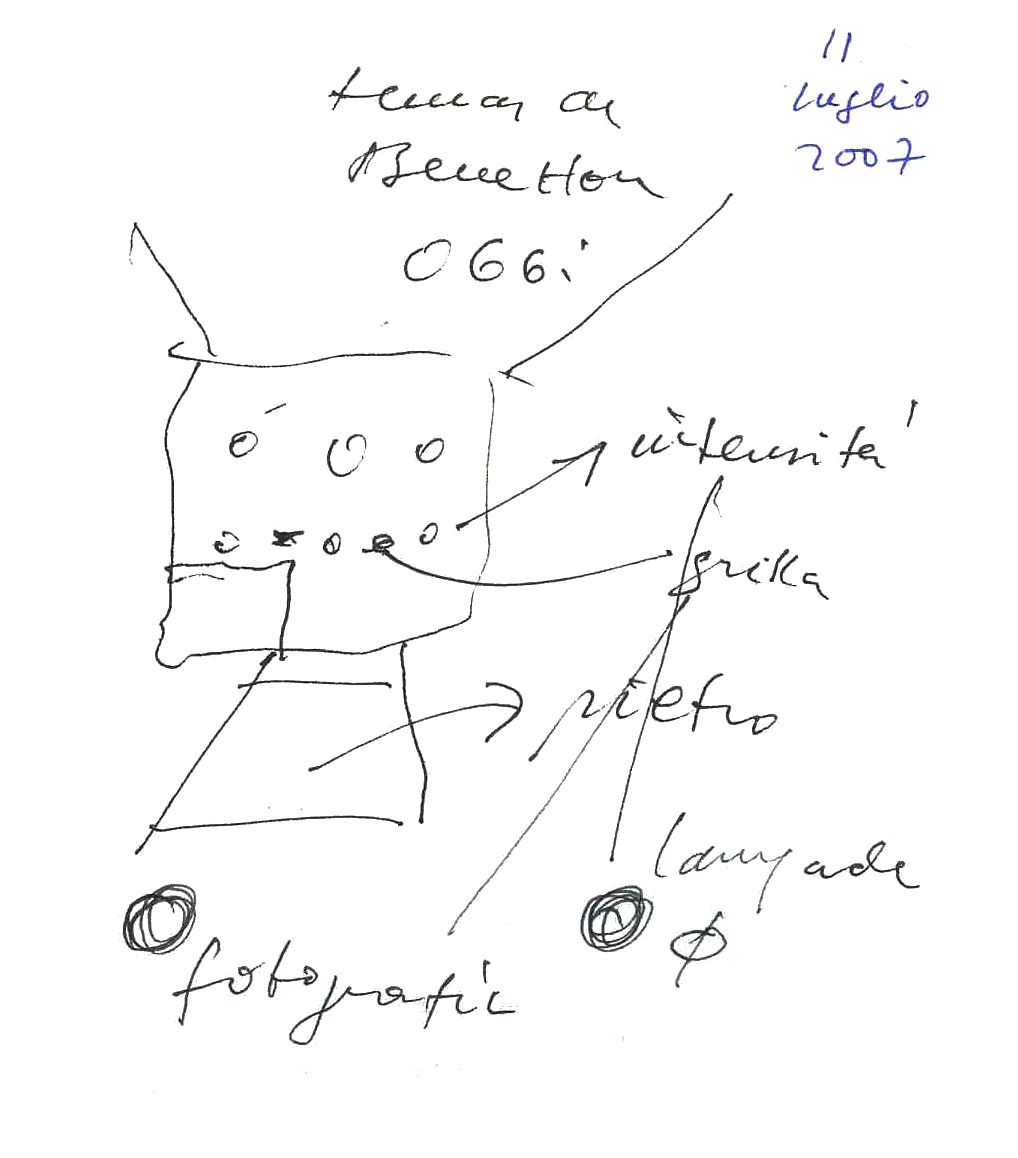 11
luglio
2007
Benetton
OGGi
intensità
grilla
vietro
lampade
φ
fotografie